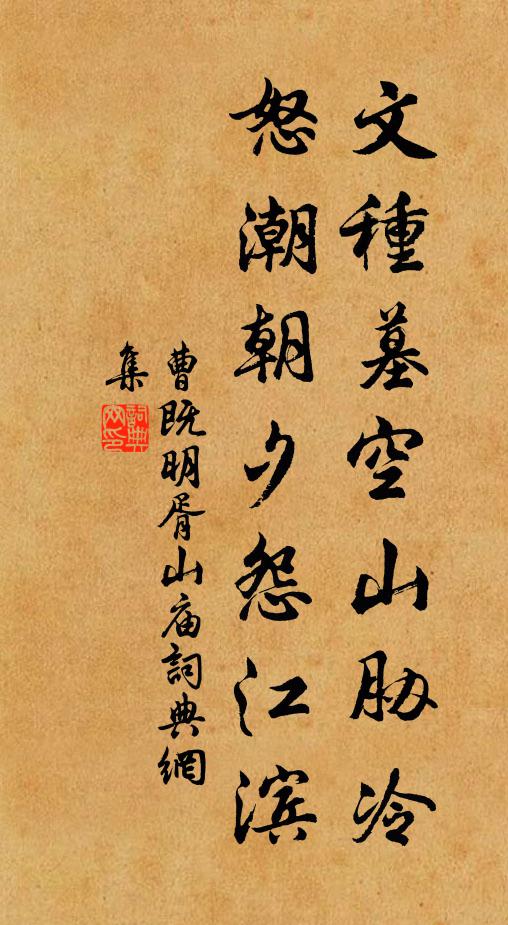 文種墓空山胁冷
怒潮朝夕怨江滨
曹既明胥山庙詞典網
集
詞典
网印